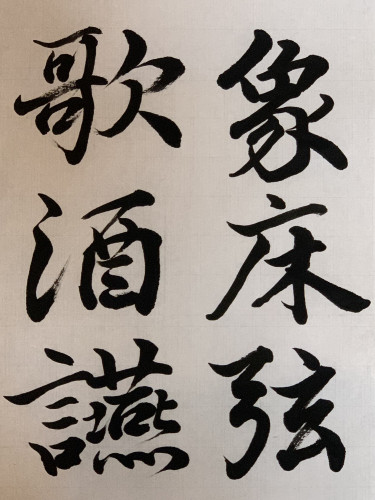 象床弦
歌酒讌